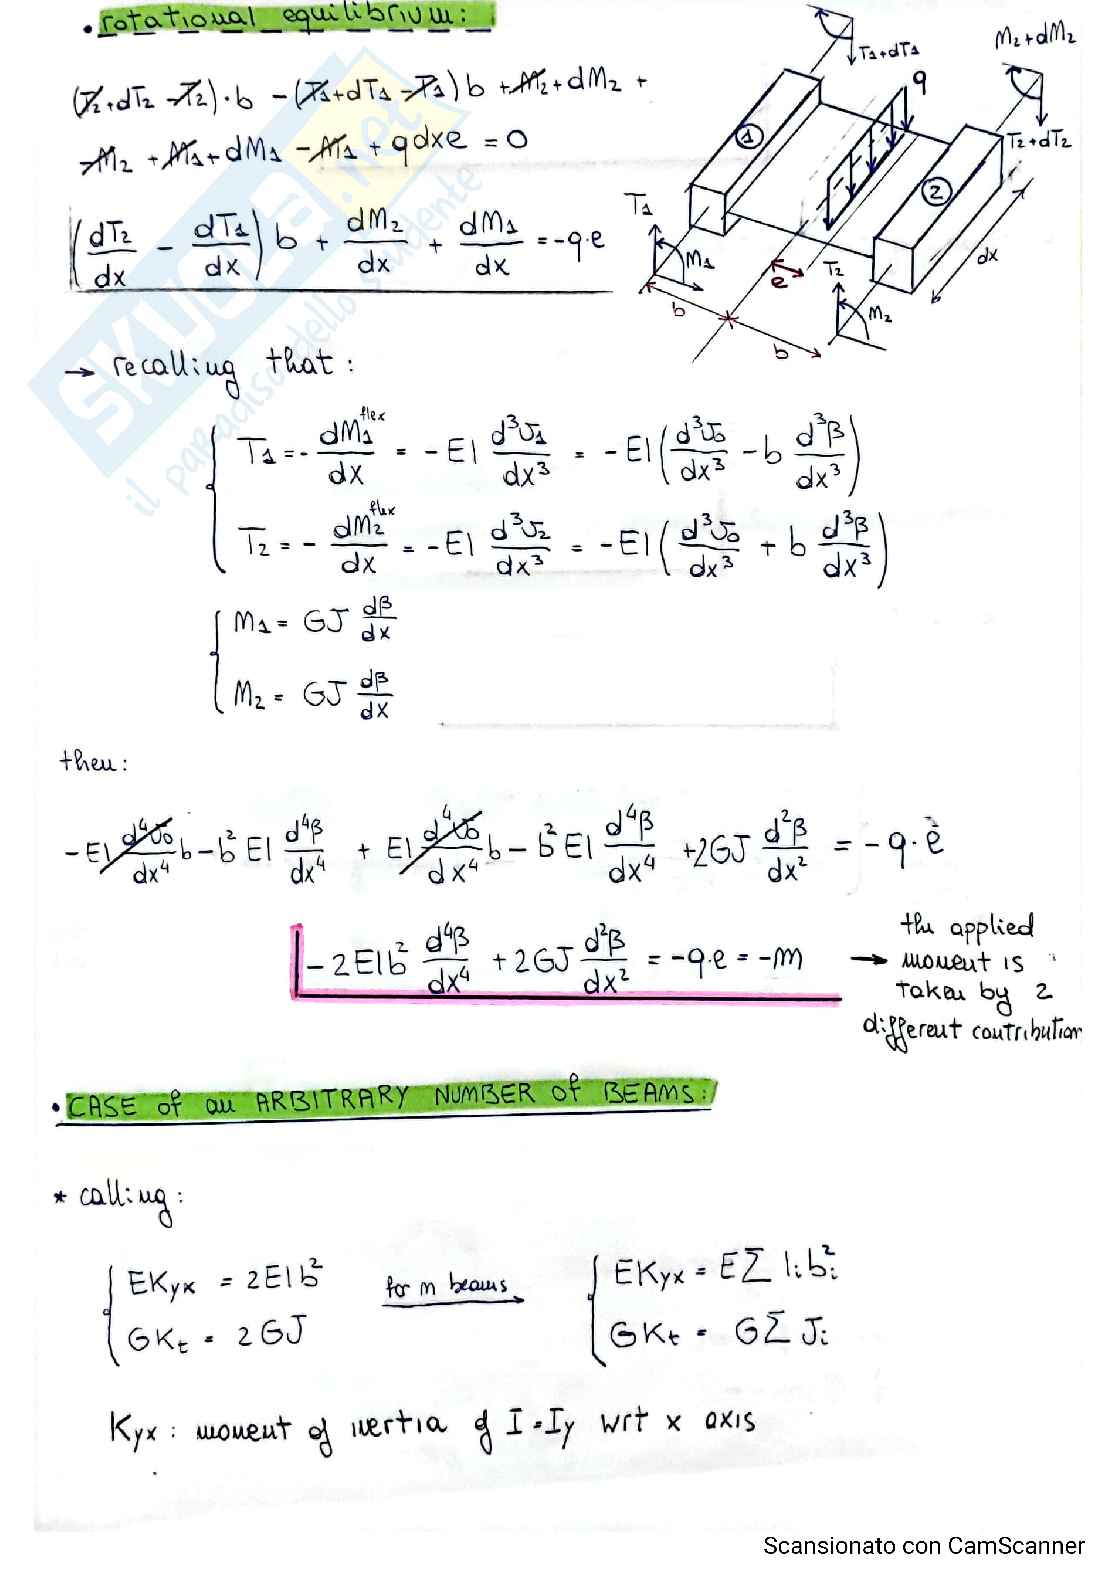 • rotational equilibrium:
(T₂+dT₂ -T₂)·b - (T₁+dT₁ -T₁)b + M₂+dM₂ +
-M₂ + M₁+dM₁ -M₁ + qdxe = 0
(dT₂/dx - dT₁/dx) b + dM₂/dx + dM₁/dx = -q·e
T₁+dT₁
M₂+dM₂
q
T₂+dT₂
①
②
T₁
M₁
dx
e
T₂
M₂
b
b
→ recalling that:
T₁ = - dM₁^flex/dx = -EI d³v₁/dx³ = -EI (d³v₀/dx³ - b d³β/dx³)
T₂ = - dM₂^flex/dx = -EI d³v₂/dx³ = -EI (d³v₀/dx³ + b d³β/dx³)
M₁ = GJ dβ/dx
M₂ = GJ dβ/dx
then:
-EI d⁴v₀/dx⁴ b - b² EI d⁴β/dx⁴ + EI d⁴v₀/dx⁴ b - b² EI d⁴β/dx⁴ +2GJ d²β/dx² = -q·e
-2EIb² d⁴β/dx⁴ + 2GJ d²β/dx² = -q·e = -m
→ the applied
moment is
taken by 2
different contribution
• CASE of an ARBITRARY NUMBER of BEAMS:
* calling:
EKyx = 2EIb²
GKt = 2GJ
for n beams
EKyx = EΣ Iᵢbᵢ²
GKt = GΣ Jᵢ
Kyx : moment of inertia of I = Iy wrt x axis
SKUOLA.net
il paradiso dello studente
Scansionato con CamScanner